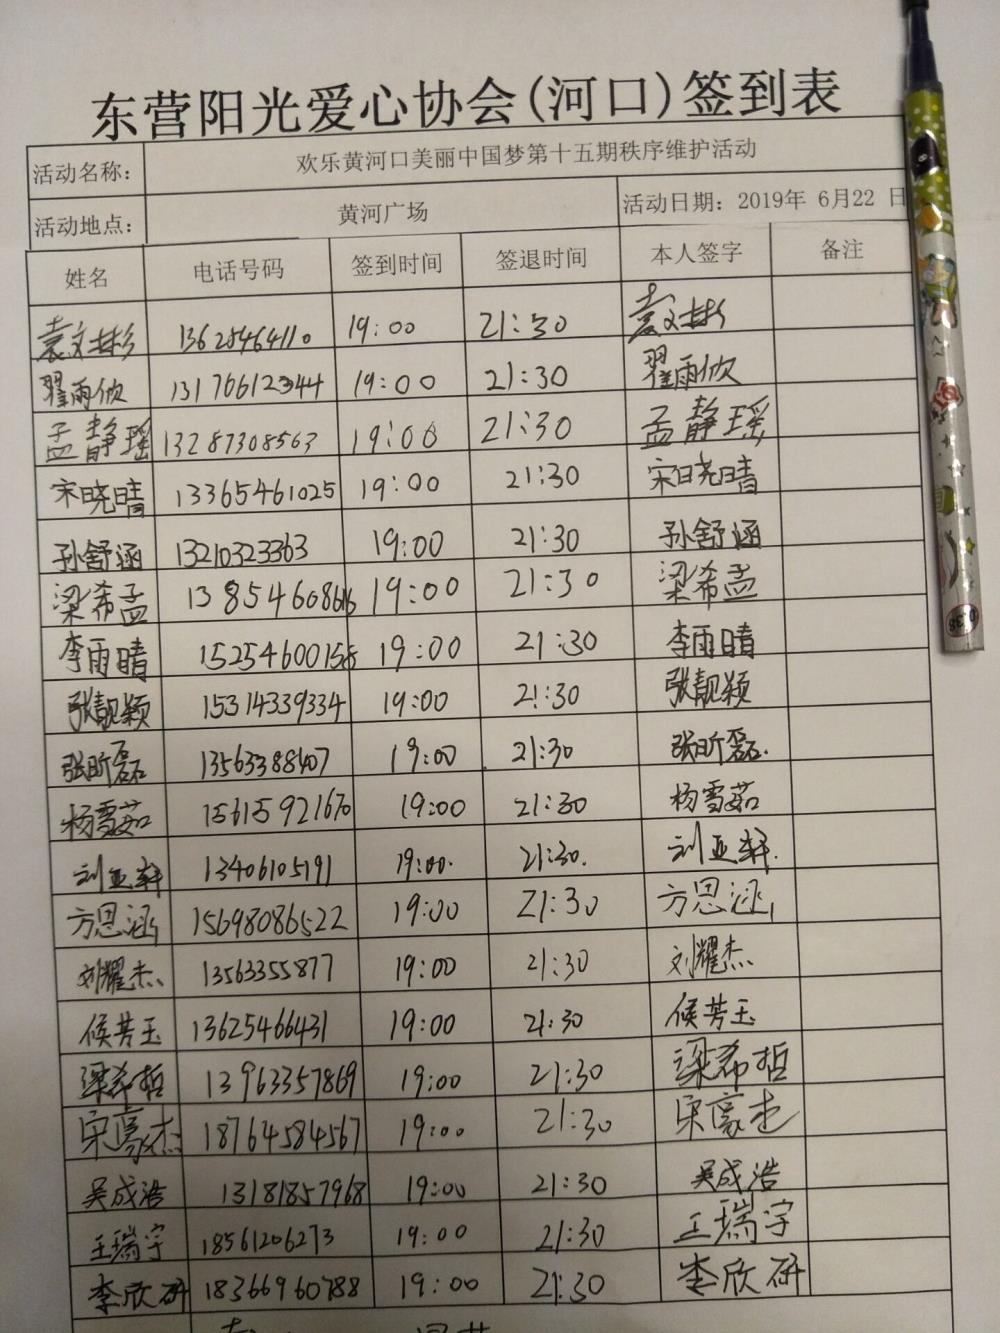 东营阳光爱心协会(河口)签到表
活动名称： 欢乐黄河口美丽中国梦第十五期秩序维护活动
活动地点： 黄河广场 活动日期：2019年 6月22 日
姓名 电话号码 签到时间 签退时间 本人签字 备注
袁文彬 13625464110 19:00 21:30 袁文彬
翟雨欣 13176612344 19:00 21:30 翟雨欣
孟静瑶 13287308563 19:00 21:30 孟静瑶
宋晓晴 13365461025 19:00 21:30 宋晓晴
孙舒涵 13210323363 19:00 21:30 孙舒涵
梁希孟 19:00 21:30 梁希孟
李雨晴 19:00 21:30 李雨晴
张靓颖 15314339334 19:00 21:30 张靓颖
张昕磊 19:00 21:30 张昕磊.
杨雪茹 15615921670 19:00 21:30 杨雪茹
刘亚轩 13406105191 19:00. 21:30. 刘亚轩.
方思涵 15698086522 19:00 21:30 方思涵
刘耀杰 13563355877 19:00 21:30 刘耀杰
候芳玉 13625466431 19:00 21:30 候芳玉
梁希哲 13963357869 19:00 21:30 梁希哲
宋豪杰 18764584567 19:00 21:30 宋豪杰
吴成浩 13181857968 19:00 21:30 吴成浩
王瑞宇 18561206273 19:00 21:30 王瑞宇
李欣研 18366960788 19:00 21:30 李欣研